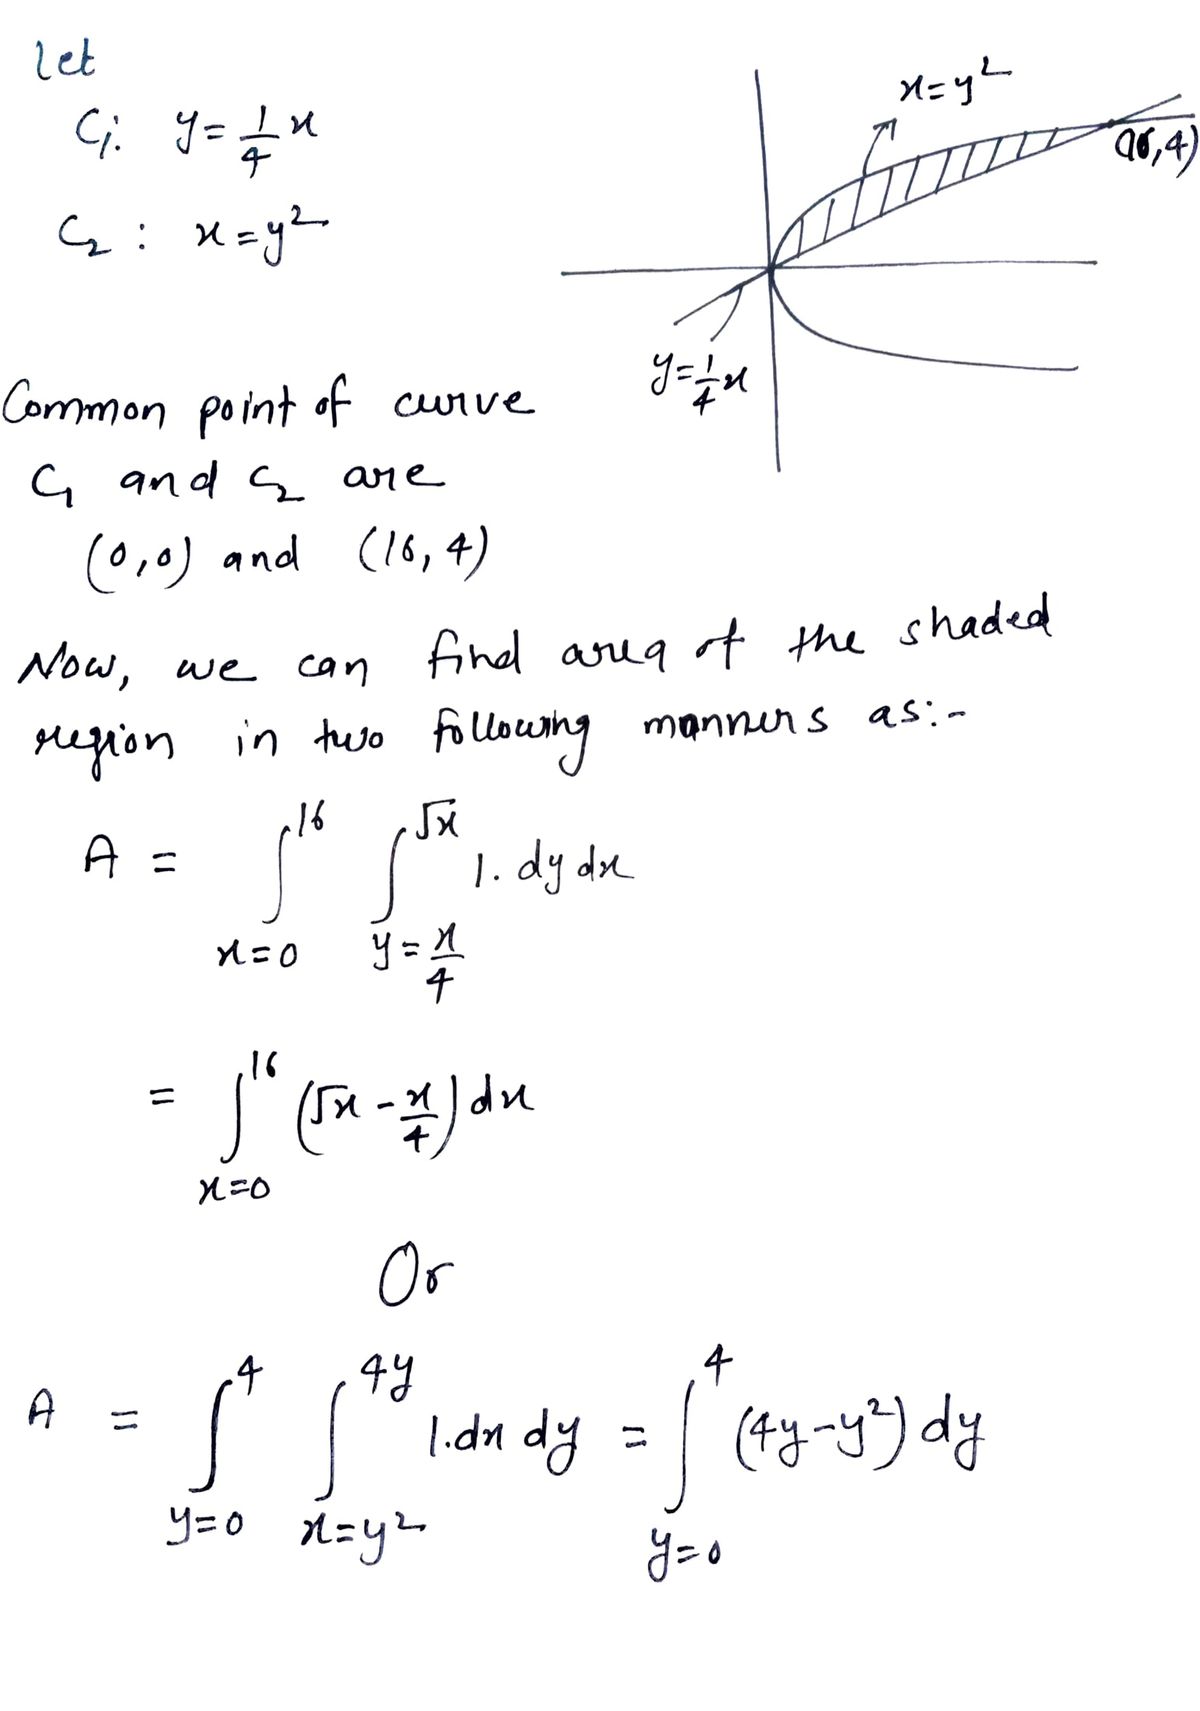 Let
C₁: y = 1/4 x
C₂ : x = y²
x = y²
(16,4)
y = 1/4 x
Common point of curve
C₁ and C₂ are
(0,0) and (16, 4)
Now, we can find area of the shaded
region in two following manners as:-
A = ∫_{x=0}^{16} ∫_{y=x/4}^{√x} 1. dy dx
= ∫_{x=0}^{16} (√x - x/4) dx
Or
A = ∫_{y=0}^{4} ∫_{x=y²}^{4y} 1.dx dy = ∫_{y=0}^{4} (4y-y²) dy